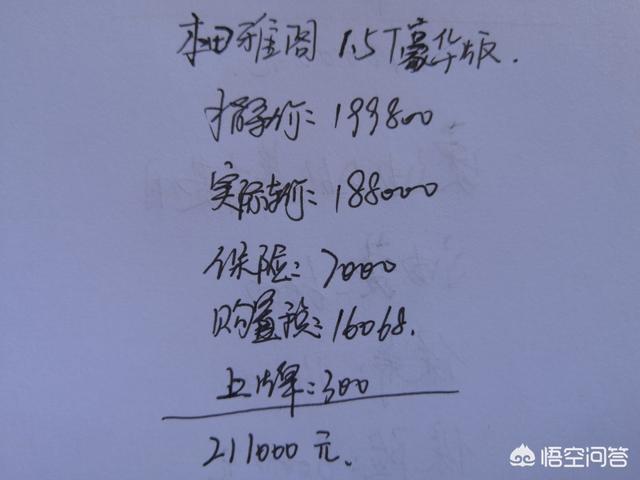 本田雅阁 1.5T豪华版.
指导价:199800
实际车价:188000
保险:7000
购置税:16068.
上牌:300
211000元.
悟空问答